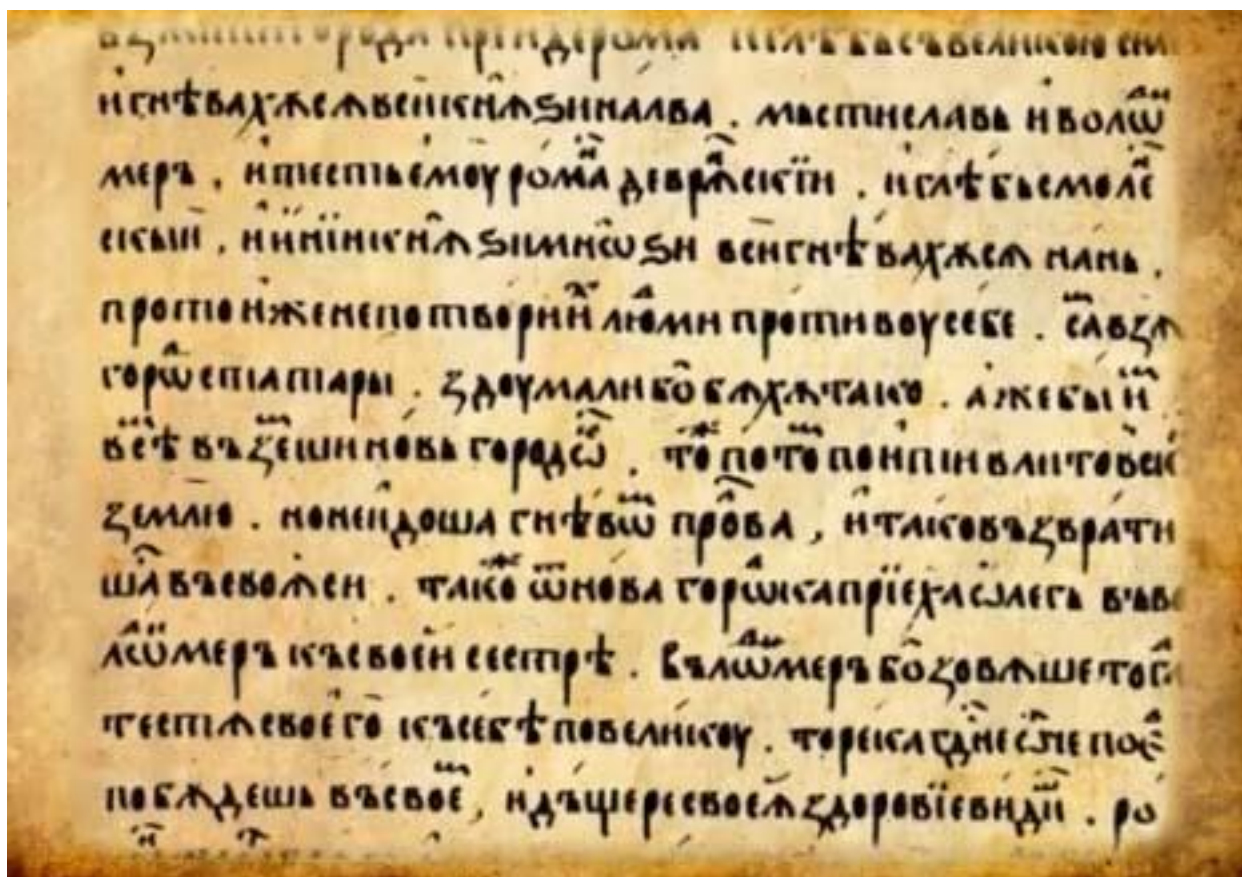 и гнѣвахѫсѧ вси кнѧѕи на лва . мьстиславь и волѡди
меръ . и тесть емоу романъ дебрѧнскїи . и глѣбь смоле
скыи . и инїи кнѧѕи мнѡѕи вси гнѣвахѫсѧ нань .
про то иже не потвори ихъ людми противоу себе . самъ взѧ
городѡ ста тары . здоумали бо бѧхѫ тако . аже бы имъ
всѣмъ въземши новь городѡкъ . тоже потомъ поити в литовьскоую
землю . но не идоша гнѣвѡмъ про лва , и тако възврати
шасѧ въ своѧ си . такоже ѿ нова городѡка прїеха ѡлегь въ во
лѡдимеръ къ своеи сестрѣ . вълѡдимеръ бо зовѧше того
тестѧ своего къ себѣ по великоу . то река господине ѡтче поеди
побѫдешь въ своемъ , и дъщере своеѧ здоровїе видиши . ро